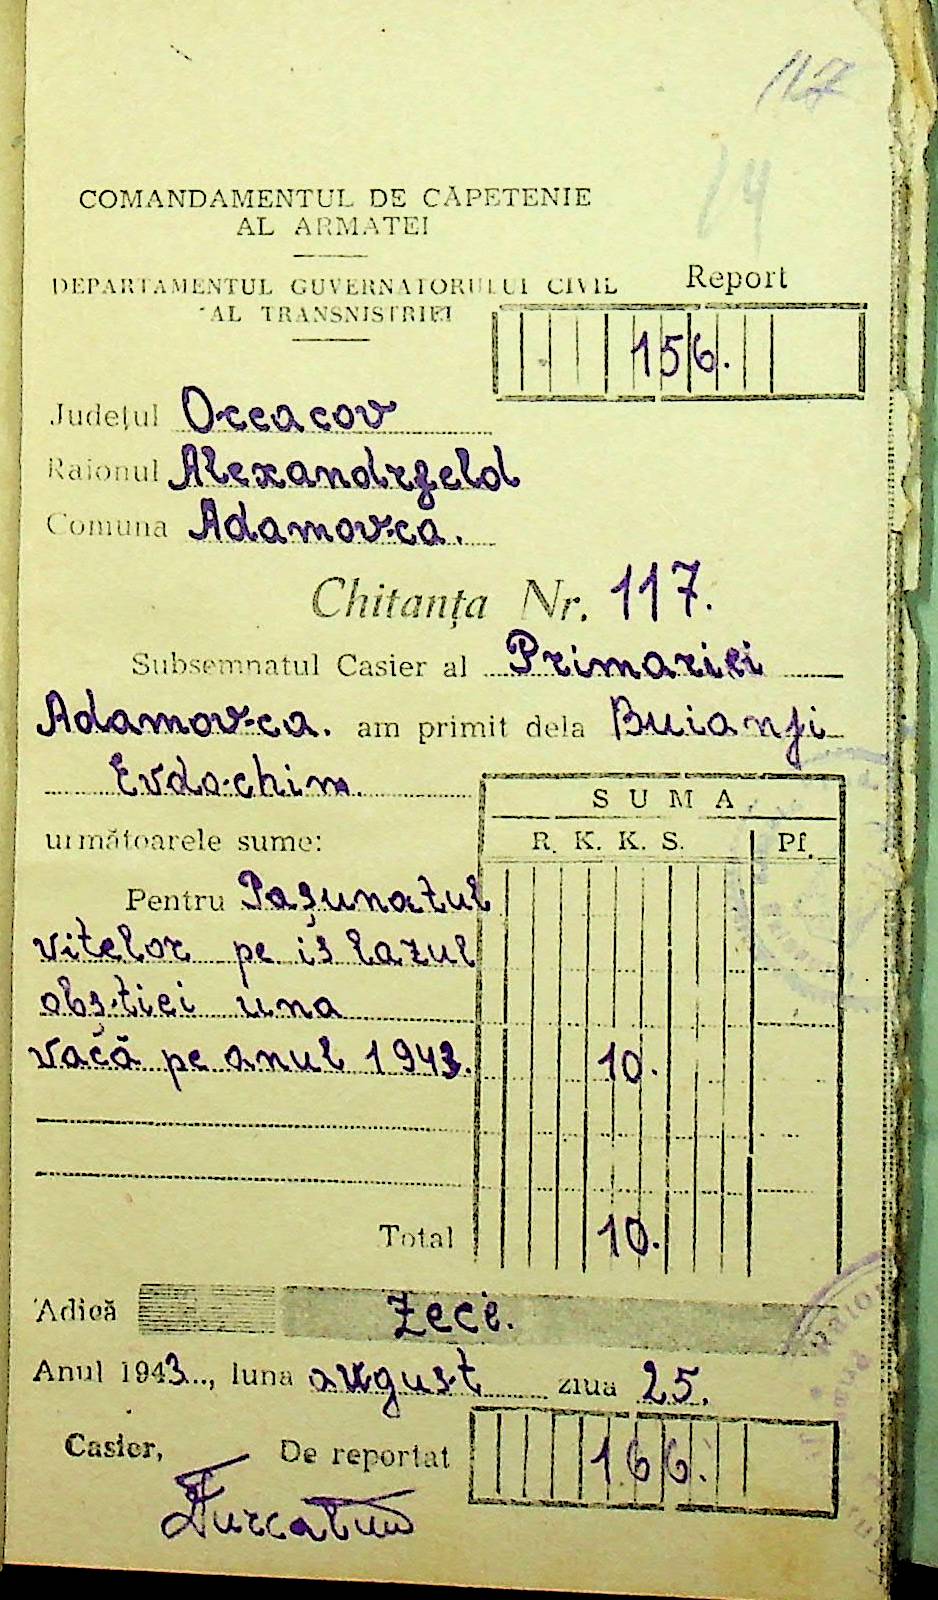 117
14
COMANDAMENTUL DE CĂPETENIE
AL ARMATEI
DEPARTAMENTUL GUVERNATORULUI CIVIL
AL TRANSNISTRIEI
Report
156.
Județul Oceacov
Raionul Alexandrfeld
Comuna Adamovca.
Chitanța Nr. 117.
Subsemnatul Casier al Primariei
Adamovca. am primit dela Buianji
Evdochim.
următoarele sume:
SUMA
R. K. K. S. Pf.
Pentru Pașunatul
vitelor pe islazul
obștiei una
vacă pe anul 1943. 10.
Total 10.
Adică zece.
Anul 1943.., luna august ziua 25.
Casier, De reportat 166.